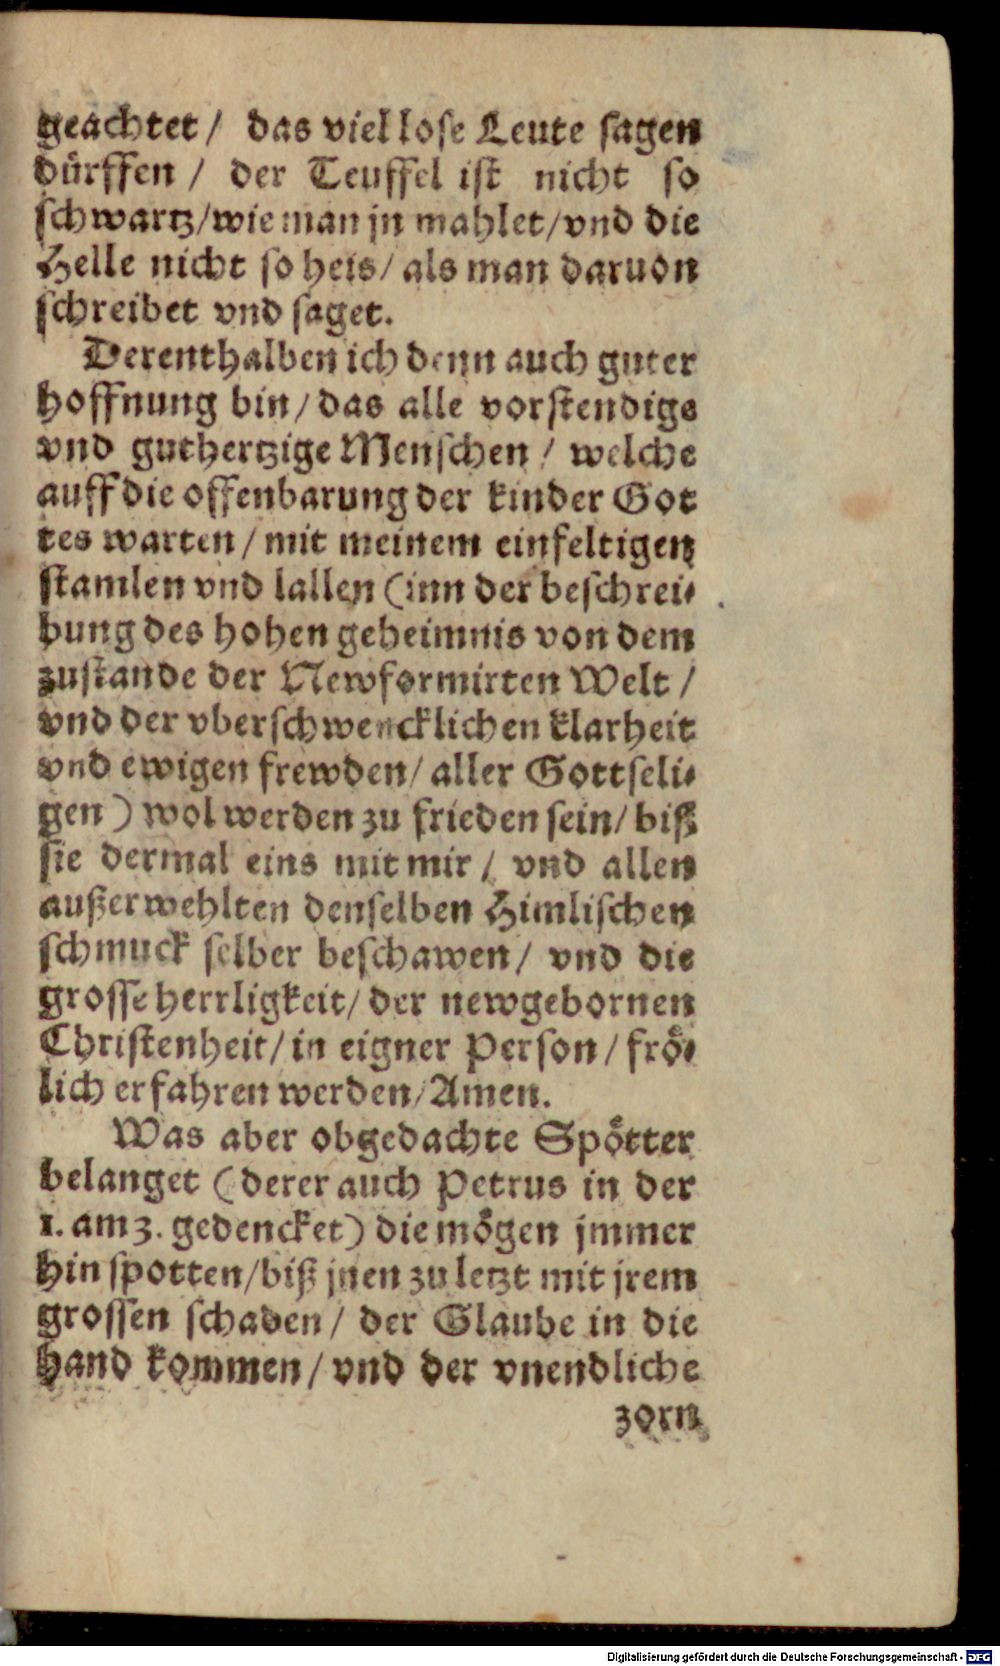 geachtet/ das viel lose Leute sagen
dürffen/ der Teuffel ist nicht so
schwartz/wie man jn mahlet/vnd die
Helle nicht so heis/ als man daruon
schreibet vnd saget.
Derenthalben ich denn auch guter
hoffnung bin/ das alle vorstendige
vnd guthertzige Menschen/ welche
auff die offenbarung der kinder Got
tes warten/ mit meinem einfeltigen
stamlen vnd lallen (inn der beschrei-
bung des hohen geheimnis von dem
zustande der Newformirten Welt/
vnd der vberschwencklichen klarheit
vnd ewigen frewden/ aller Gottseli-
gen) wol werden zu frieden sein/ biß
sie dermal eins mit mir/ vnd allen
außerwehlten denselben Himlischen
schmuck selber beschawen/ vnd die
grosse herrligkeit/ der newgebornen
Christenheit/ in eigner Person/ frö-
lich erfahren werden/ Amen.
Was aber obgedachte Spötter
belanget (derer auch Petrus in der
1. am 3. gedencket) die mögen jmmer
hin spotten/biß jnen zu letzt mit jrem
grossen schaden/ der Glaube in die
hand kommen/ vnd der vnendliche
zorn
Digitalisierung gefördert durch die Deutsche Forschungsgemeinschaft - DFG